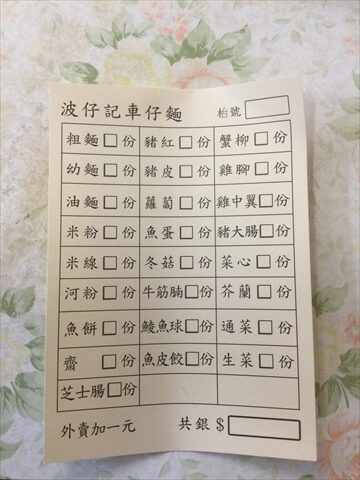 波仔記車仔麵 枱號
粗麵 份 豬紅 份 蟹柳 份
幼麵 份 豬皮 份 雞腳 份
油麵 份 蘿蔔 份 雞中翼 份
米粉 份 魚蛋 份 豬大腸 份
米線 份 冬菇 份 菜心 份
河粉 份 牛筋腩 份 芥蘭 份
魚餅 份 鯪魚球 份 通菜 份
齋 份 魚皮餃 份 生菜 份
芝士腸 份
外賣加一元 共銀 $